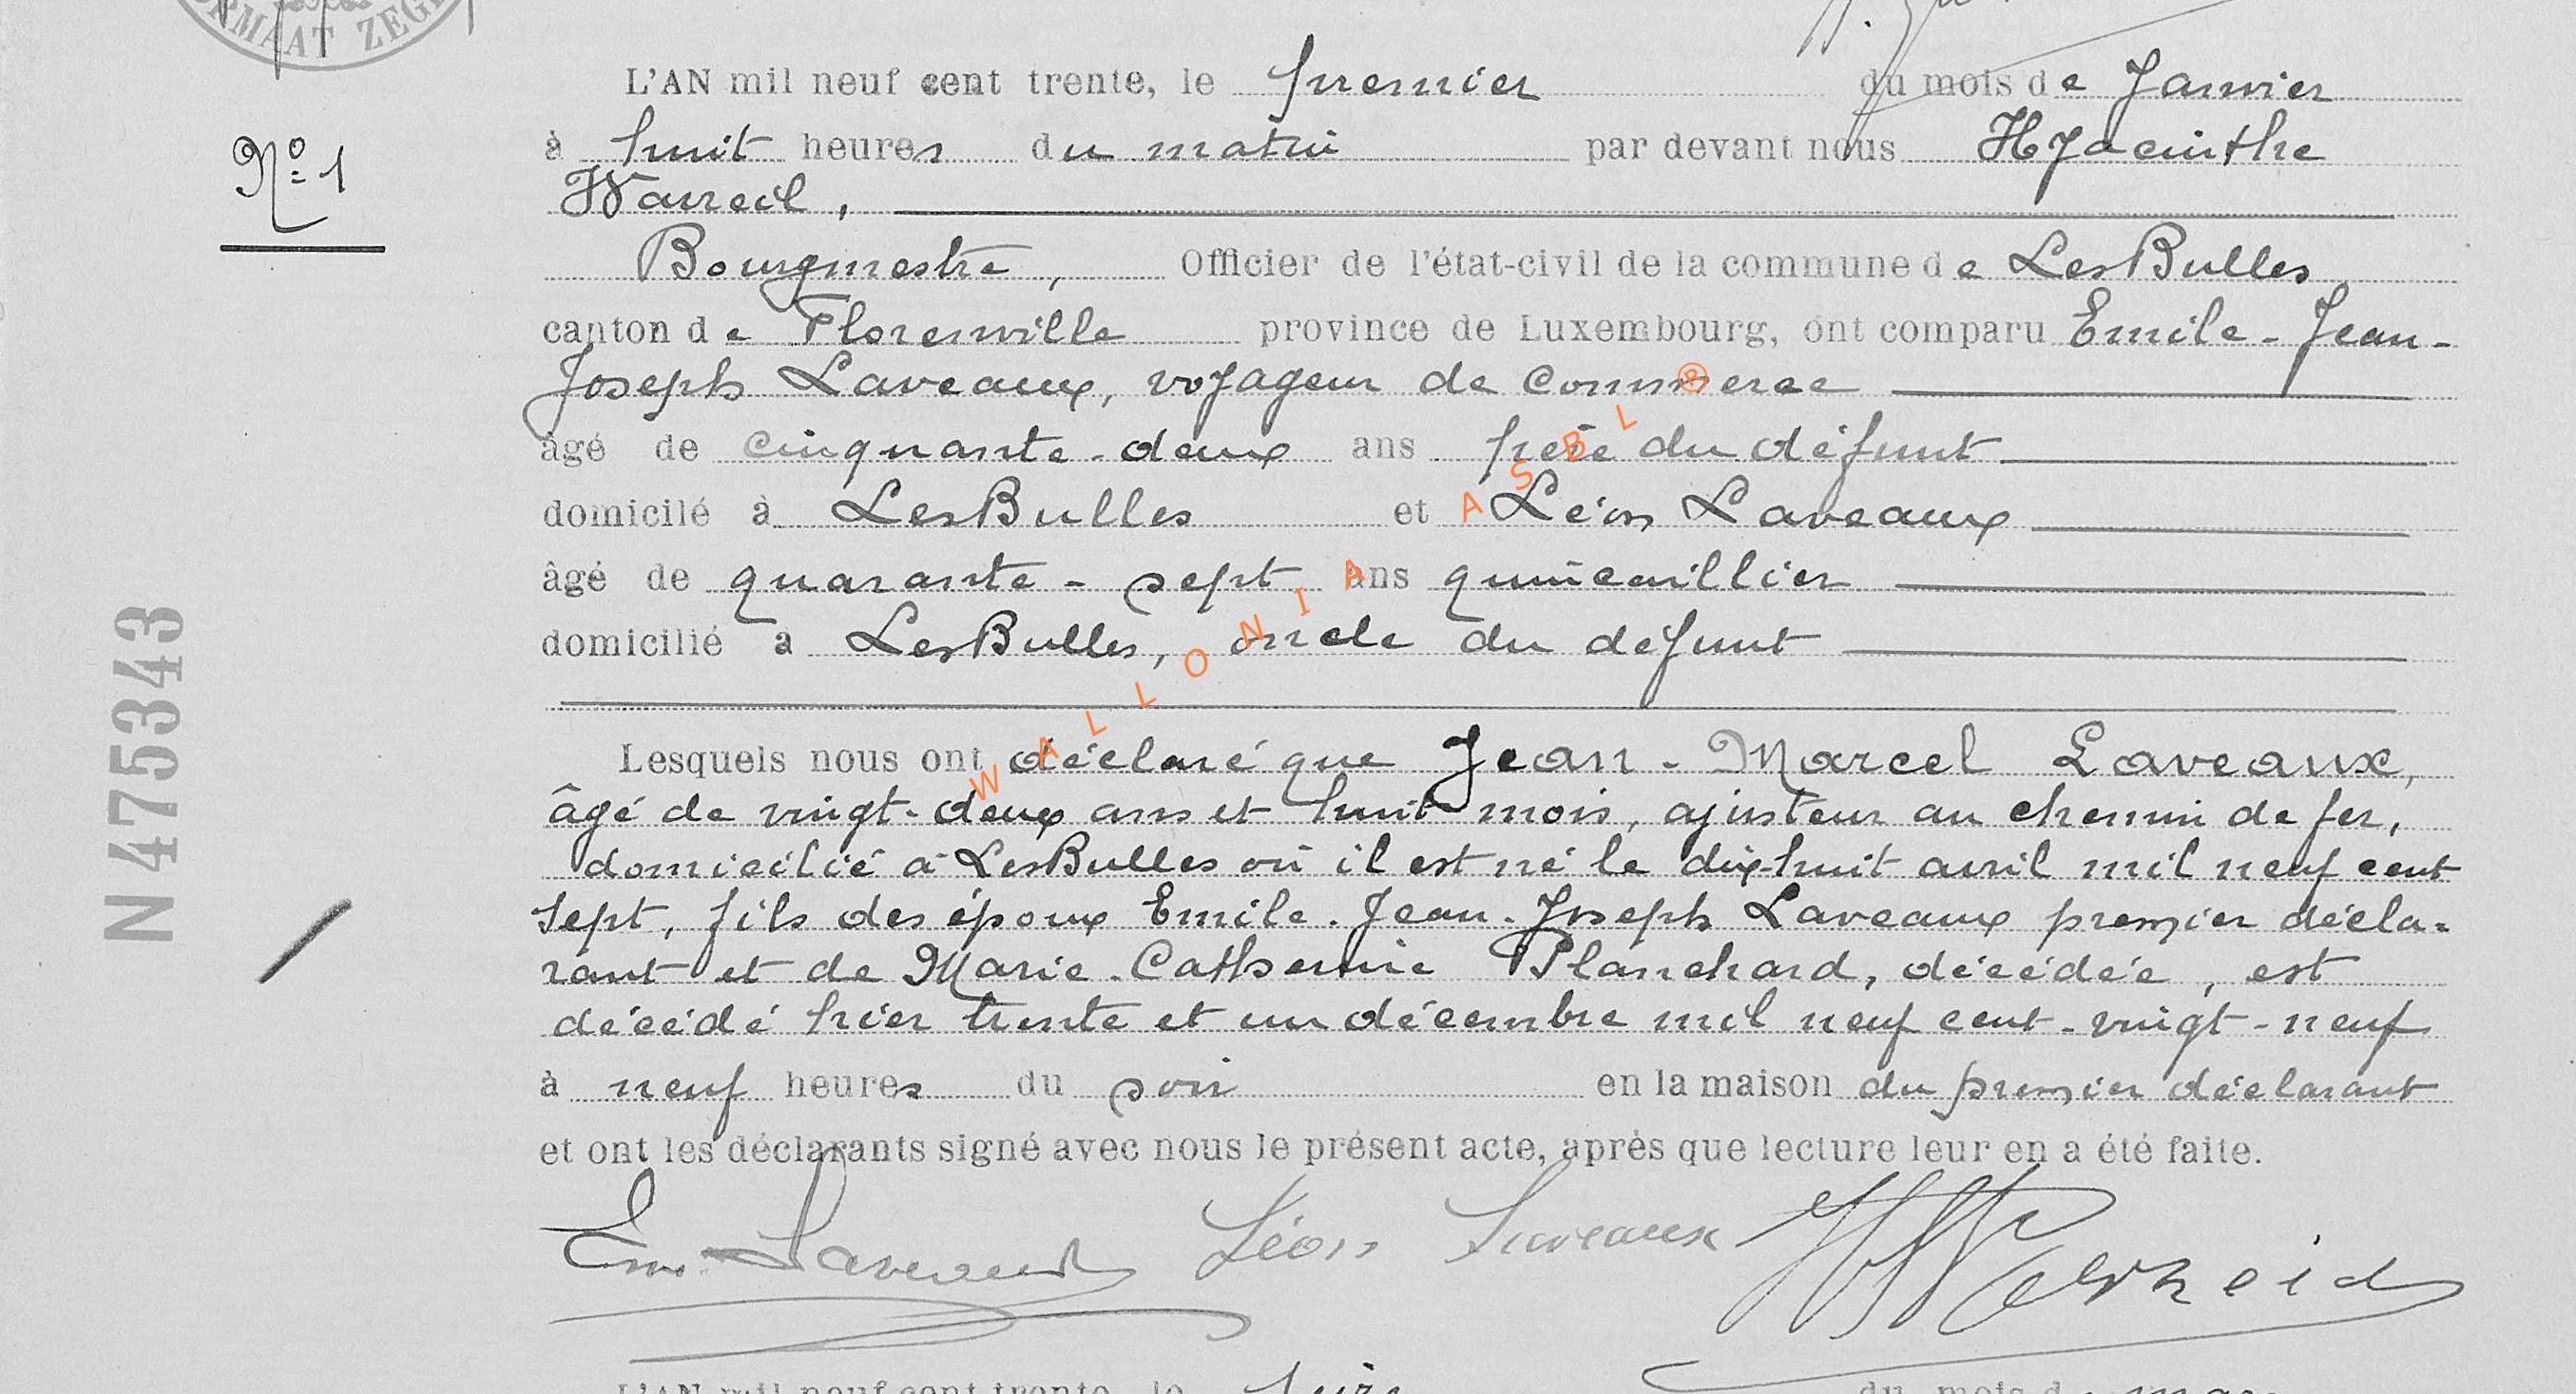 RMAAT ZEG
L'AN mil neuf cent trente, le premier du mois de Janvier
Nº 1
à huit heures du matin par devant nous Hyacinthe
Waureil,
Bourgmestre, Officier de l'état-civil de la commune de LesBulles
canton de Florenville province de Luxembourg, ont comparu Emile-Jean-
Joseph Laveaux, voyageur de commerce
âgé de cinquante-deux ans père du défunt
domicilé à LesBulles et Léon Laveaux
âgé de quarante-sept ans quincaillier
domicilié à LesBulles, oncle du défunt
WALLONIA ASBL ®
N 475343
Lesquels nous ont déclaré que Jean-Marcel Laveaux,
âgé de vingt-deux ans et huit mois, ajusteur au chemin de fer,
domicilié à LesBulles où il est né le dix-huit avril mil neuf cent
sept, fils des époux Emile-Jean-Joseph Laveaux premier décla-
rant et de Marie-Catherine Planchard, décédée, est
décédé hier trente et un décembre mil neuf cent-vingt-neuf
à neuf heures du soir en la maison du premier déclarant
et ont les déclarants signé avec nous le présent acte, après que lecture leur en a été faite.
Em. Laveaux Léon Laveaux
L'AN mil neuf cent trente, le du mois de